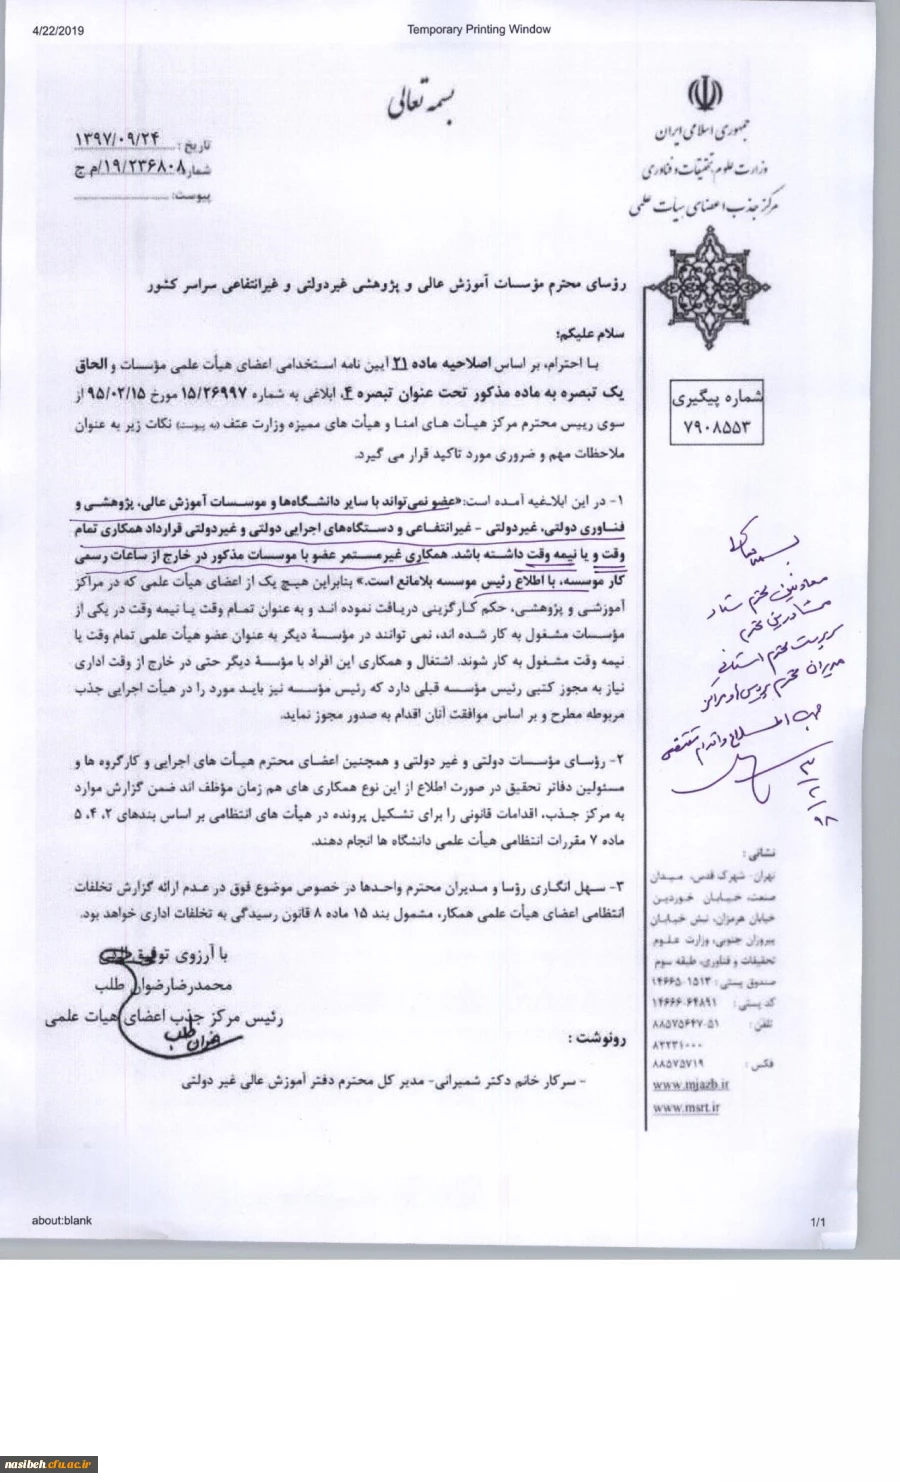 4/22/2019
Temporary Printing Window
بسمه تعالی
جمهوری اسلامی ایران
وزارت علوم، تحقیقات و فناوری
مرکز جذب اعضای هیات علمی
تاریخ : ۱۳۹۷/۰۹/۲۴
شماره ۱۹/۲۳۶۸۰۸/م ج
پیوست:
رؤسای محترم مؤسسات آموزش عالی و پژوهشی غیردولتی و غیرانتفاعی سراسر کشور
سلام علیکم؛
با احترام، بر اساس اصلاحیه ماده ۲۱ آیین نامه استخدامی اعضای هیأت علمی مؤسسات و الحاق
یک تبصره به ماده مذکور تحت عنوان تبصره ۴، ابلاغی به شماره ۱۵/۲۶۹۹۷ مورخ ۹۵/۰۲/۱۵ از
سوی رییس محترم مرکز هیأت های امنا و هیأت های ممیزه وزارت عتف (به پیوست) نکات زیر به عنوان
ملاحظات مهم و ضروری مورد تاکید قرار می گیرد.
شماره پیگیری
۷۹۰۸۵۵۳
۱- در این ابلاغیه آمده است:«عضو نمی‌تواند با سایر دانشگاه‌ها و موسسات آموزش عالی، پژوهشی و
فناوری دولتی، غیردولتی - غیرانتفاعی و دستگاه‌های اجرایی دولتی و غیردولتی قرارداد همکاری تمام
وقت و یا نیمه وقت داشته باشد. همکاری غیرمستمر عضو با موسسات مذکور در خارج از ساعات رسمی
کار موسسه، با اطلاع رئیس موسسه بلامانع است.» بنابراین هیچ یک از اعضای هیأت علمی که در مراکز
آموزشی و پژوهشی، حکم کارگزینی دریافت نموده اند و به عنوان تمام وقت یا نیمه وقت در یکی از
مؤسسات مشغول به کار شده اند، نمی توانند در مؤسسهٔ دیگر به عنوان عضو هیأت علمی تمام وقت یا
نیمه وقت مشغول به کار شوند. اشتغال و همکاری این افراد با مؤسسهٔ دیگر حتی در خارج از وقت اداری
نیاز به مجوز کتبی رئیس مؤسسه قبلی دارد که رئیس مؤسسه نیز باید مورد را در هیأت اجرایی جذب
مربوطه مطرح و بر اساس موافقت آنان اقدام به صدور مجوز نماید.
معاونین محترم ستاد
مشاورین محترم
سرپرست محترم استانی
مدیران محترم پردیس و مراکز
جهت اطلاع و اقدام مقتضی
۹۸/۲/۳
۲- رؤسای مؤسسات دولتی و غیر دولتی و همچنین اعضای محترم هیأت های اجرایی و کارگروه ها و
مسئولین دفاتر تحقیق در صورت اطلاع از این نوع همکاری های هم زمان مؤظف اند ضمن گزارش موارد
به مرکز جذب، اقدامات قانونی را برای تشکیل پرونده در هیأت های انتظامی بر اساس بندهای ۲، ۴، ۵
ماده ۷ مقررات انتظامی هیأت علمی دانشگاه ها انجام دهند.
۳- سهل انگاری رؤسا و مدیران محترم واحدها در خصوص موضوع فوق در عدم ارائه گزارش تخلفات
انتظامی اعضای هیأت علمی همکار، مشمول بند ۱۵ ماده ۸ قانون رسیدگی به تخلفات اداری خواهد بود.
با آرزوی توفیق الهی
محمدرضا رضوان طلب
رئیس مرکز جذب اعضای هیات علمی
رونوشت :
- سرکار خانم دکتر شمیرانی- مدیر کل محترم دفتر آموزش عالی غیر دولتی
نشانی :
تهران- شهرک قدس، میدان
صنعت، خیابان خوردین
خیابان هرمزان، نبش خیابان
پیروزان جنوبی، وزارت علوم
تحقیقات و فناوری، طبقه سوم
صندوق پستی : ۱۵۱۳-۱۴۶۶۵
کد پستی : ۶۴۸۹۱-۱۴۶۶۶
تلفن : ۸۸۵۷۵۶۴۷-۵۱
۸۲۲۳۱۰۰۰
فکس : ۸۸۵۷۵۷۱۹
www.mjazb.ir
www.msrt.ir
about:blank
1/1
nasibeh.cfu.ac.ir